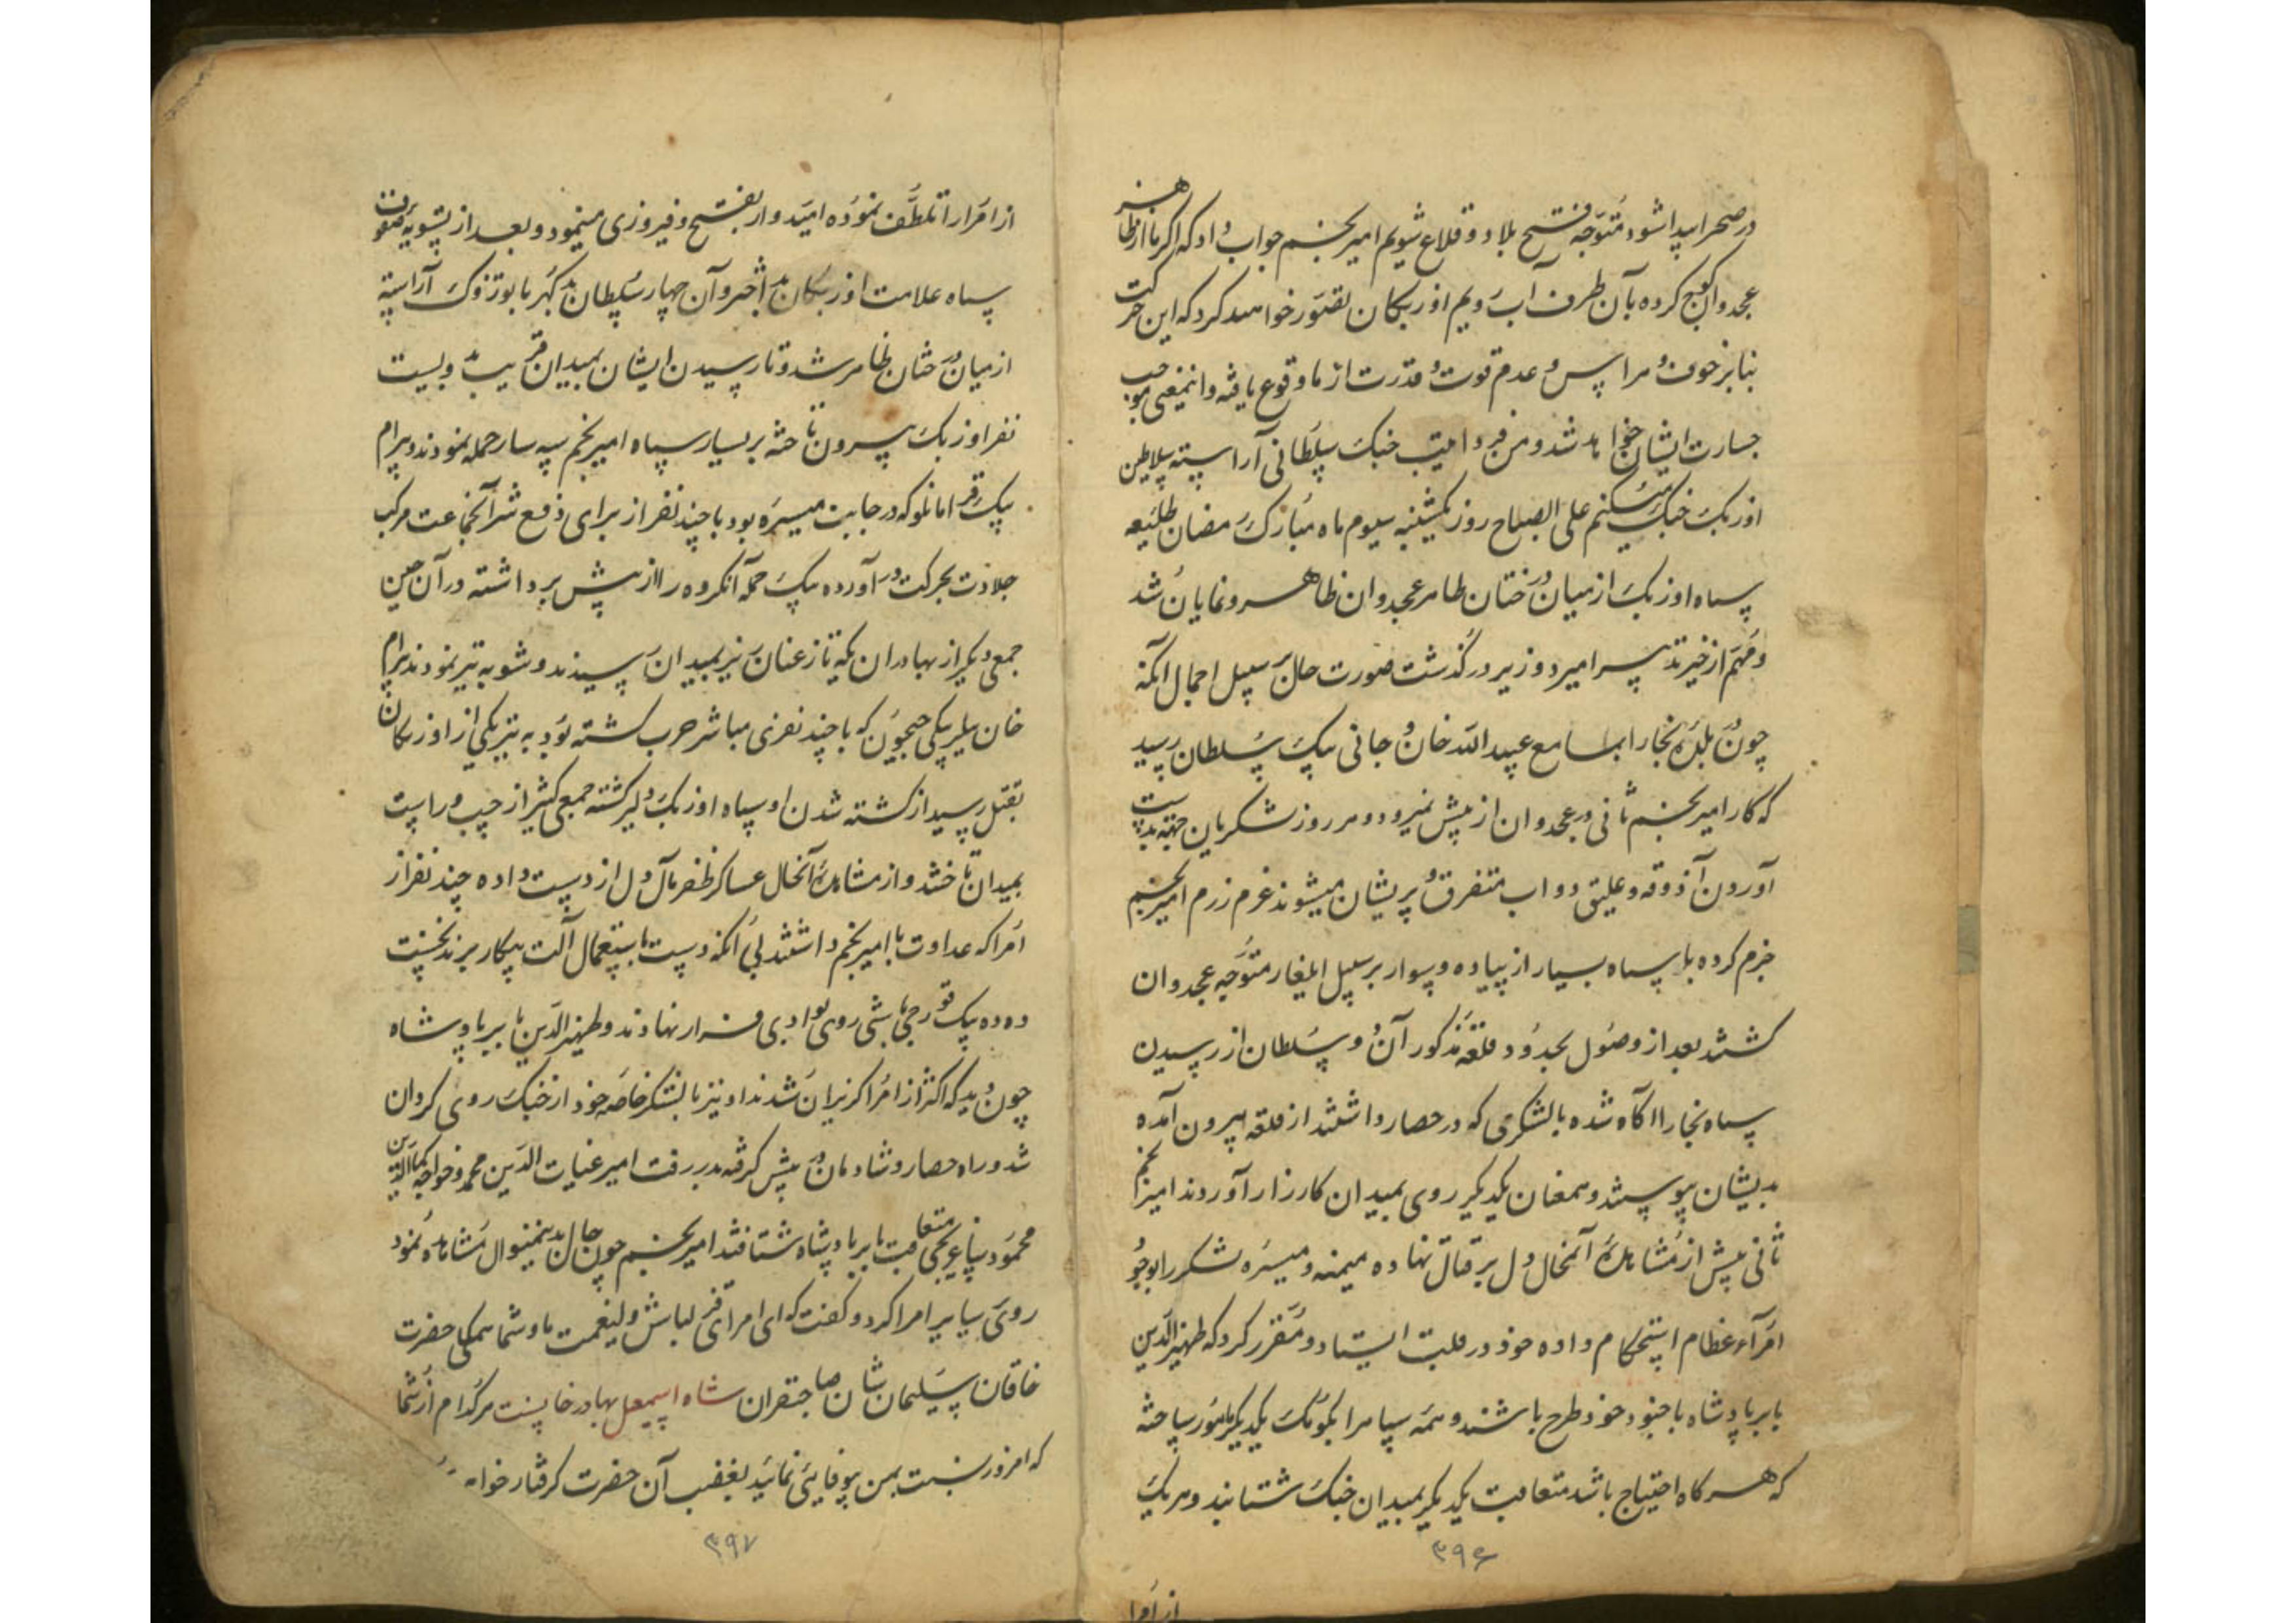 در صحرا پیدا شود متوجه فتح بلاد و قلاع شویم امیر نجم جواب داد که اگر ما از ظاهر
عجدوان کوچ کرده بآن طرف آب رویم اوزبکان تصور خواهند کرد که این حرکت
بنابر خوف و هراس و عدم قوت و قدرت از ما وقوع یافته و اینمعنی موجب
جسارت ایشان خواهد شد و من فردا جنک سلطانی آراسته بسلاطین
اوزبک جنک میکنم علی الصباح روز یکشنبه سیوم ماه مبارک رمضان طلیعه
سپاه اوزبک از میان درختان ظاهر عجدوان ظاهر و نمایان شد
و مهم از خیر تدبیر امیر و وزیر درگذشت صورت حال بر سبیل اجمال آنکه
چون بلده بخارا بمسامع عبید الله خان و جانی بیک سلطان رسید
که کار امیر نجم ثانی در عجدوان از پیش نمیرود و هر روز لشکریان جهة بدست
آوردن آذوقه و علیق دواب متفرق و پریشان میشوند عزم رزم امیر نجم
جزم کرده با سپاه بسیار از پیاده و سوار بر سبیل ایلغار متوجه عجدوان
کشتند بعد از وصول بحدود قلعه مذکور آن دو سلطان از رسیدن
سپاه بخارا آگاه شده با لشکری که در حصار داشتند از قلعه بیرون آمده
بدیشان پیوستند و همعنان یکدیکر روی بمیدان کارزار آوردند امیر نجم
ثانی پیش از مشاهده آنحال دل بر قتال نهاده میمنه و میسره لشکر را بوجود
امراء عظام استحکام داده خود در قلب ایستاد و مقرر کرد که ظهیر الدین
بابر پادشاه با جنود خود طرح باشند و همه سپاه را بکومک یکدیکر مامور ساخته
که هر گاه احتیاج باشد متعاقب یکدیکر بمیدان جنک شتابند و هر یک
۳۹۶
از امرا
از امرا را تلطف نموده امیدوار بفتح و فیروزی مینمود و بعد از تسویه صفوف
سپاه علامت اوزبکان بد اختر و آن چهار سلطان بد کهر با یوز و تزوک آراسته
از میان درختان ظاهر شد و تا رسیدن ایشان بمیدان قریب بدویست
نفر اوزبک بیرون تاخته بر یسار سپاه امیر نجم سپه سار حمله نمودند و بیرام
بیک قرامانلو که در جانب میسره بود با چند نفر از برای دفع شر آنجماعت مرکب
جلادت بحرکت در آورده بیک حمله آنکروه را از پیش برداشته در آن حین
جمعی دیکر از بهادران یکه تاز عنان ریز بمیدان رسیدند و شروع به تیر نمودند بیرام
خان بیلربیکی جیحون که با چند نفری مباشر حرب کشته بود به تیر یکی از اوزبکان
بقتل رسید از کشته شدن او سپاه اوزبک دلیر کشته جمعی کثیر از چپ و راست
بمیدان تاختند و از مشاهده آنحال عساکر ظفر مآل دل از دست داده چند نفر از
امرا که عداوت با امیر نجم داشتند بی آنکه دست باستعمال آلت پیکار برند نخست
دده بیک قورچی باشی روی بوادی فرار نهادند و ظهیر الدین بابر پادشاه
چون دید که اکثر از امرا کریزان شدند او نیز با لشکر خاصه خود از جنک روی کردان
شد و راه حصار و شادمان در پیش کرفته بدر رفت امیر غیاث الدین محمد و خواجه کمال الدین
محمود ساغرجی متعاقب بابر پادشاه شتافتند امیر نجم چون حال بدینمنوال مشاهده نمود
روی بسایر امرا کرد و کفت که ای امرای قزلباش ولینعمت ما و شما همکی حضرت
خاقان سلیمان شان صاحبقران شاه اسمعیل بهادر خانست هر کدام از شما
که امروز نسبت بمن بیوفایی نمائید بغضب آن حضرت کرفتار خواهد
۳۹۷